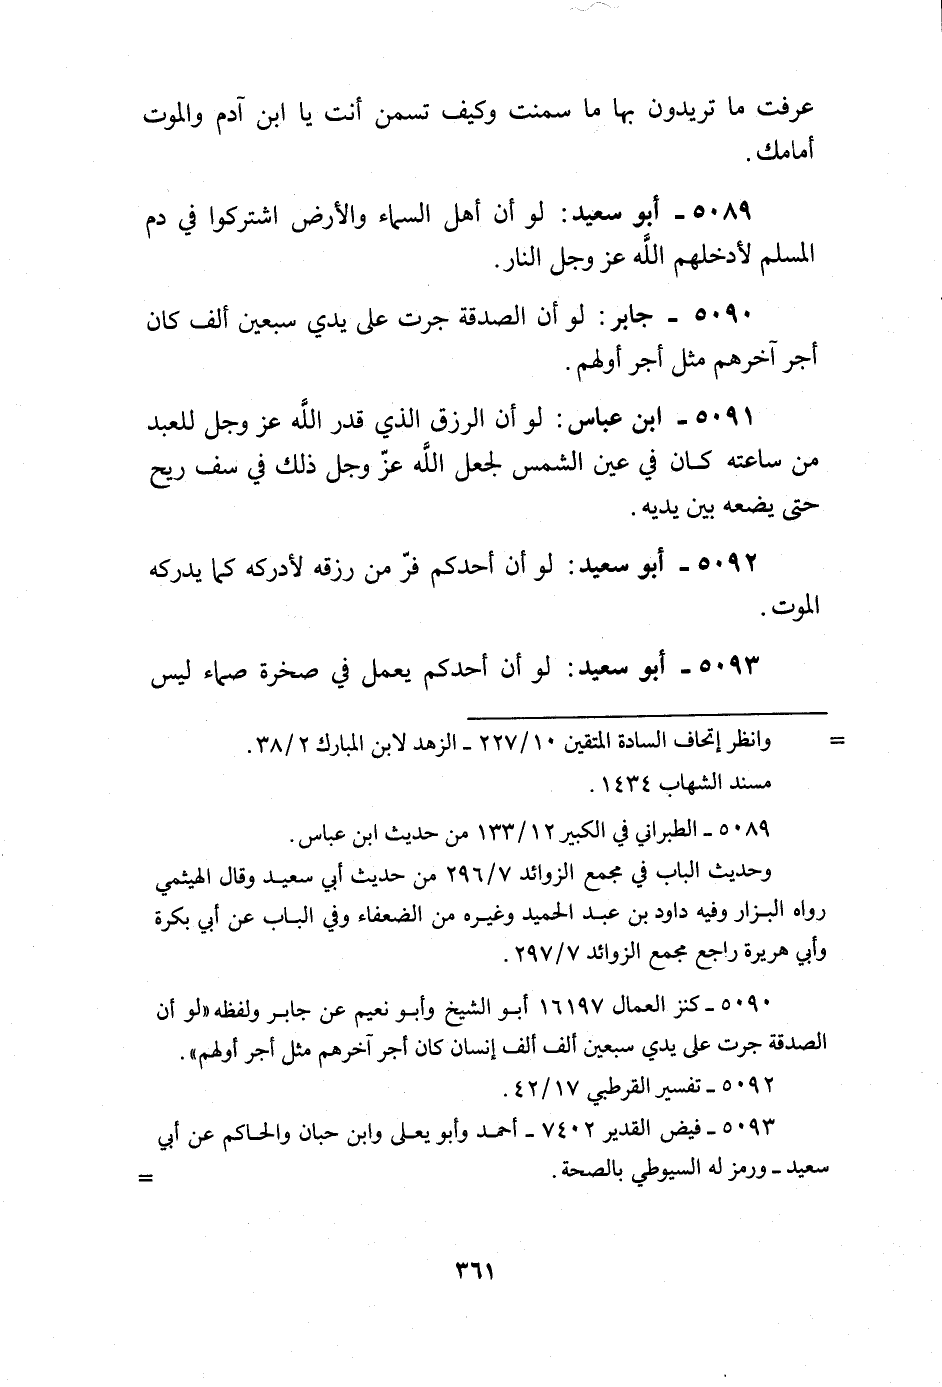 عرفت ما تريدون بها ما سمنت وكيف تسمن أنت يا ابن آدم والموت
أمامك.
٥٠٨٩ ـ أبو سعيد: لو أن أهل السماء والأرض اشتركوا في دم
المسلم لأدخلهم اللَّه عز وجل النار.
٥٠٩٠ ـ جابر: لو أن الصدقة جرت على يدي سبعين ألف كان
أجر آخرهم مثل أجر أولهم.
٥٠٩١ ـ ابن عباس: لو أن الرزق الذي قدر اللَّه عز وجل للعبد
من ساعته كان في عين الشمس لجعل اللَّه عزّ وجل ذلك في سف ريح
حتى يضعه بين يديه.
٥٠٩٢ ـ أبو سعيد: لو أن أحدكم فرّ من رزقه لأدركه كما يدركه
الموت.
٥٠٩٣ ـ أبو سعيد: لو أن أحدكم يعمل في صخرة صماء ليس
= وانظر إتحاف السادة المتقين ٢٢٧/١٠ ـ الزهد لابن المبارك ٣٨/٢.
مسند الشهاب ١٤٣٤.
٥٠٨٩ ـ الطبراني في الكبير ١٣٣/١٢ من حديث ابن عباس.
وحديث الباب في مجمع الزوائد ٢٩٦/٧ من حديث أبي سعيد وقال الهيثمي
رواه البزار وفيه داود بن عبد الحميد وغيره من الضعفاء وفي الباب عن أبي بكرة
وأبي هريرة راجع مجمع الزوائد ٢٩٧/٧.
٥٠٩٠ ـ كنز العمال ١٦١٩٧ أبو الشيخ وأبو نعيم عن جابر ولفظه «لو أن
الصدقة جرت على يدي سبعين ألف ألف إنسان كان أجر آخرهم مثل أجر أولهم».
٥٠٩٢ ـ تفسير القرطبي ٤٢/١٧.
٥٠٩٣ ـ فيض القدير ٧٤٠٢ ـ أحمد وأبو يعلى وابن حبان والحاكم عن أبي
سعيد ـ ورمز له السيوطي بالصحة. =
٣٦١